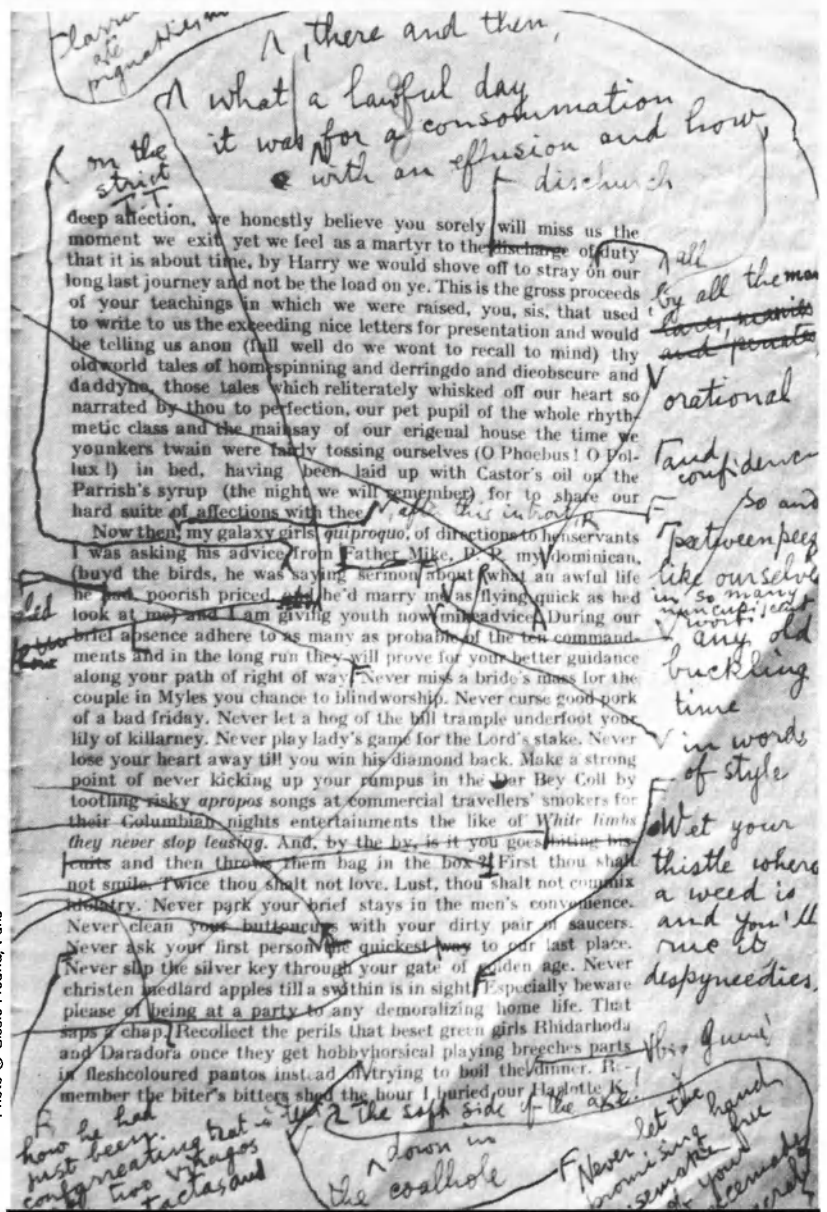 , there and then,
what a lawful day
it was for a consommation
with an effusion and how,
on the
strict
T.T.
dischurch
deep affection, we honestly believe you sorely will miss us the
moment we exit yet we feel as a martyr to the discharge of duty
that it is about time, by Harry we would shove off to stray on our
long last journey and not be the load on ye. This is the gross proceeds
of your teachings in which we were raised, you, sis, that used
to write to us the exceeding nice letters for presentation and would
be telling us anon (full well do we wont to recall to mind) thy
oldworld tales of homespinning and derringdo and dieobscure and
daddyho, those tales which reliterately whisked off our heart so
narrated by thou to perfection, our pet pupil of the whole rhyth-
metic class and the mainsay of our erigenal house the time we
younkers twain were fairly tossing ourselves (O Phoebus! O Pol-
lux!) in bed, having been laid up with Castor's oil on the
Parrish's syrup (the night we will remember) for to share our
hard suite of affections with thee.
, after this introit
Now then, my galaxy girls, quiproquo, of directions to henservants
I was asking his advice from Father Mike, P. P. my dominican,
(buyd the birds, he was saying sermon about what an awful life
he had, poorish priced, and he'd marry me as flying quick as hed
look at me) and I am giving youth now miseadvice. During our
brief absence adhere to as many as probable of the ten command-
ments and in the long run they will prove for your better guidance
along your path of right of way. Never miss a bride's mass for the
couple in Myles you chance to blindworship. Never curse good pork
of a bad friday. Never let a hog of the bill trample underfoot your
lily of killarney. Never play lady's game for the Lord's stake. Never
lose your heart away till you win his diamond back. Make a strong
point of never kicking up your rumpus in the Dar Bey Coll by
tootling risky apropos songs at commercial travellers' smokers for
their Columbian nights entertainments the like of White limbs
they never stop teasing. And, by the by, is it you goes biting bis-
cuits and then throws them bag in the box? First thou shalt
not smile. Twice thou shalt not love. Lust, thou shalt not commix
idolatry. Never park your brief stays in the men's convenience.
Never clean your buttoncups with your dirty pair of saucers.
Never ask your first person the quickest way to our last place.
Never slip the silver key through your gate of golden age. Never
christen medlard apples till a swithin is in sight. Especially beware
please of being at a party to any demoralizing home life. That
saps a chap. Recollect the perils that beset green girls Rhidarhoda
and Daradora once they get hobbyhorsical playing breeches parts
in fleshcoloured pantos instead of trying to boil the dinner. Re-
member the biter's bitters shed the hour I buried our Harlotte K
all
by all the
lares, manes
and penates
orational
and
confidence
so and
betweenpees
like ourselves
in so many
words
any old
buckling
time
in words
of style
Wet your
thistle where
a weed is
and you'll
rue it
despyneedies.
the soft side of the axe!
down in
the coalhole
how he had
just been
confarreating
two viragos
intactas and
Never let the
promising hand
free
of your